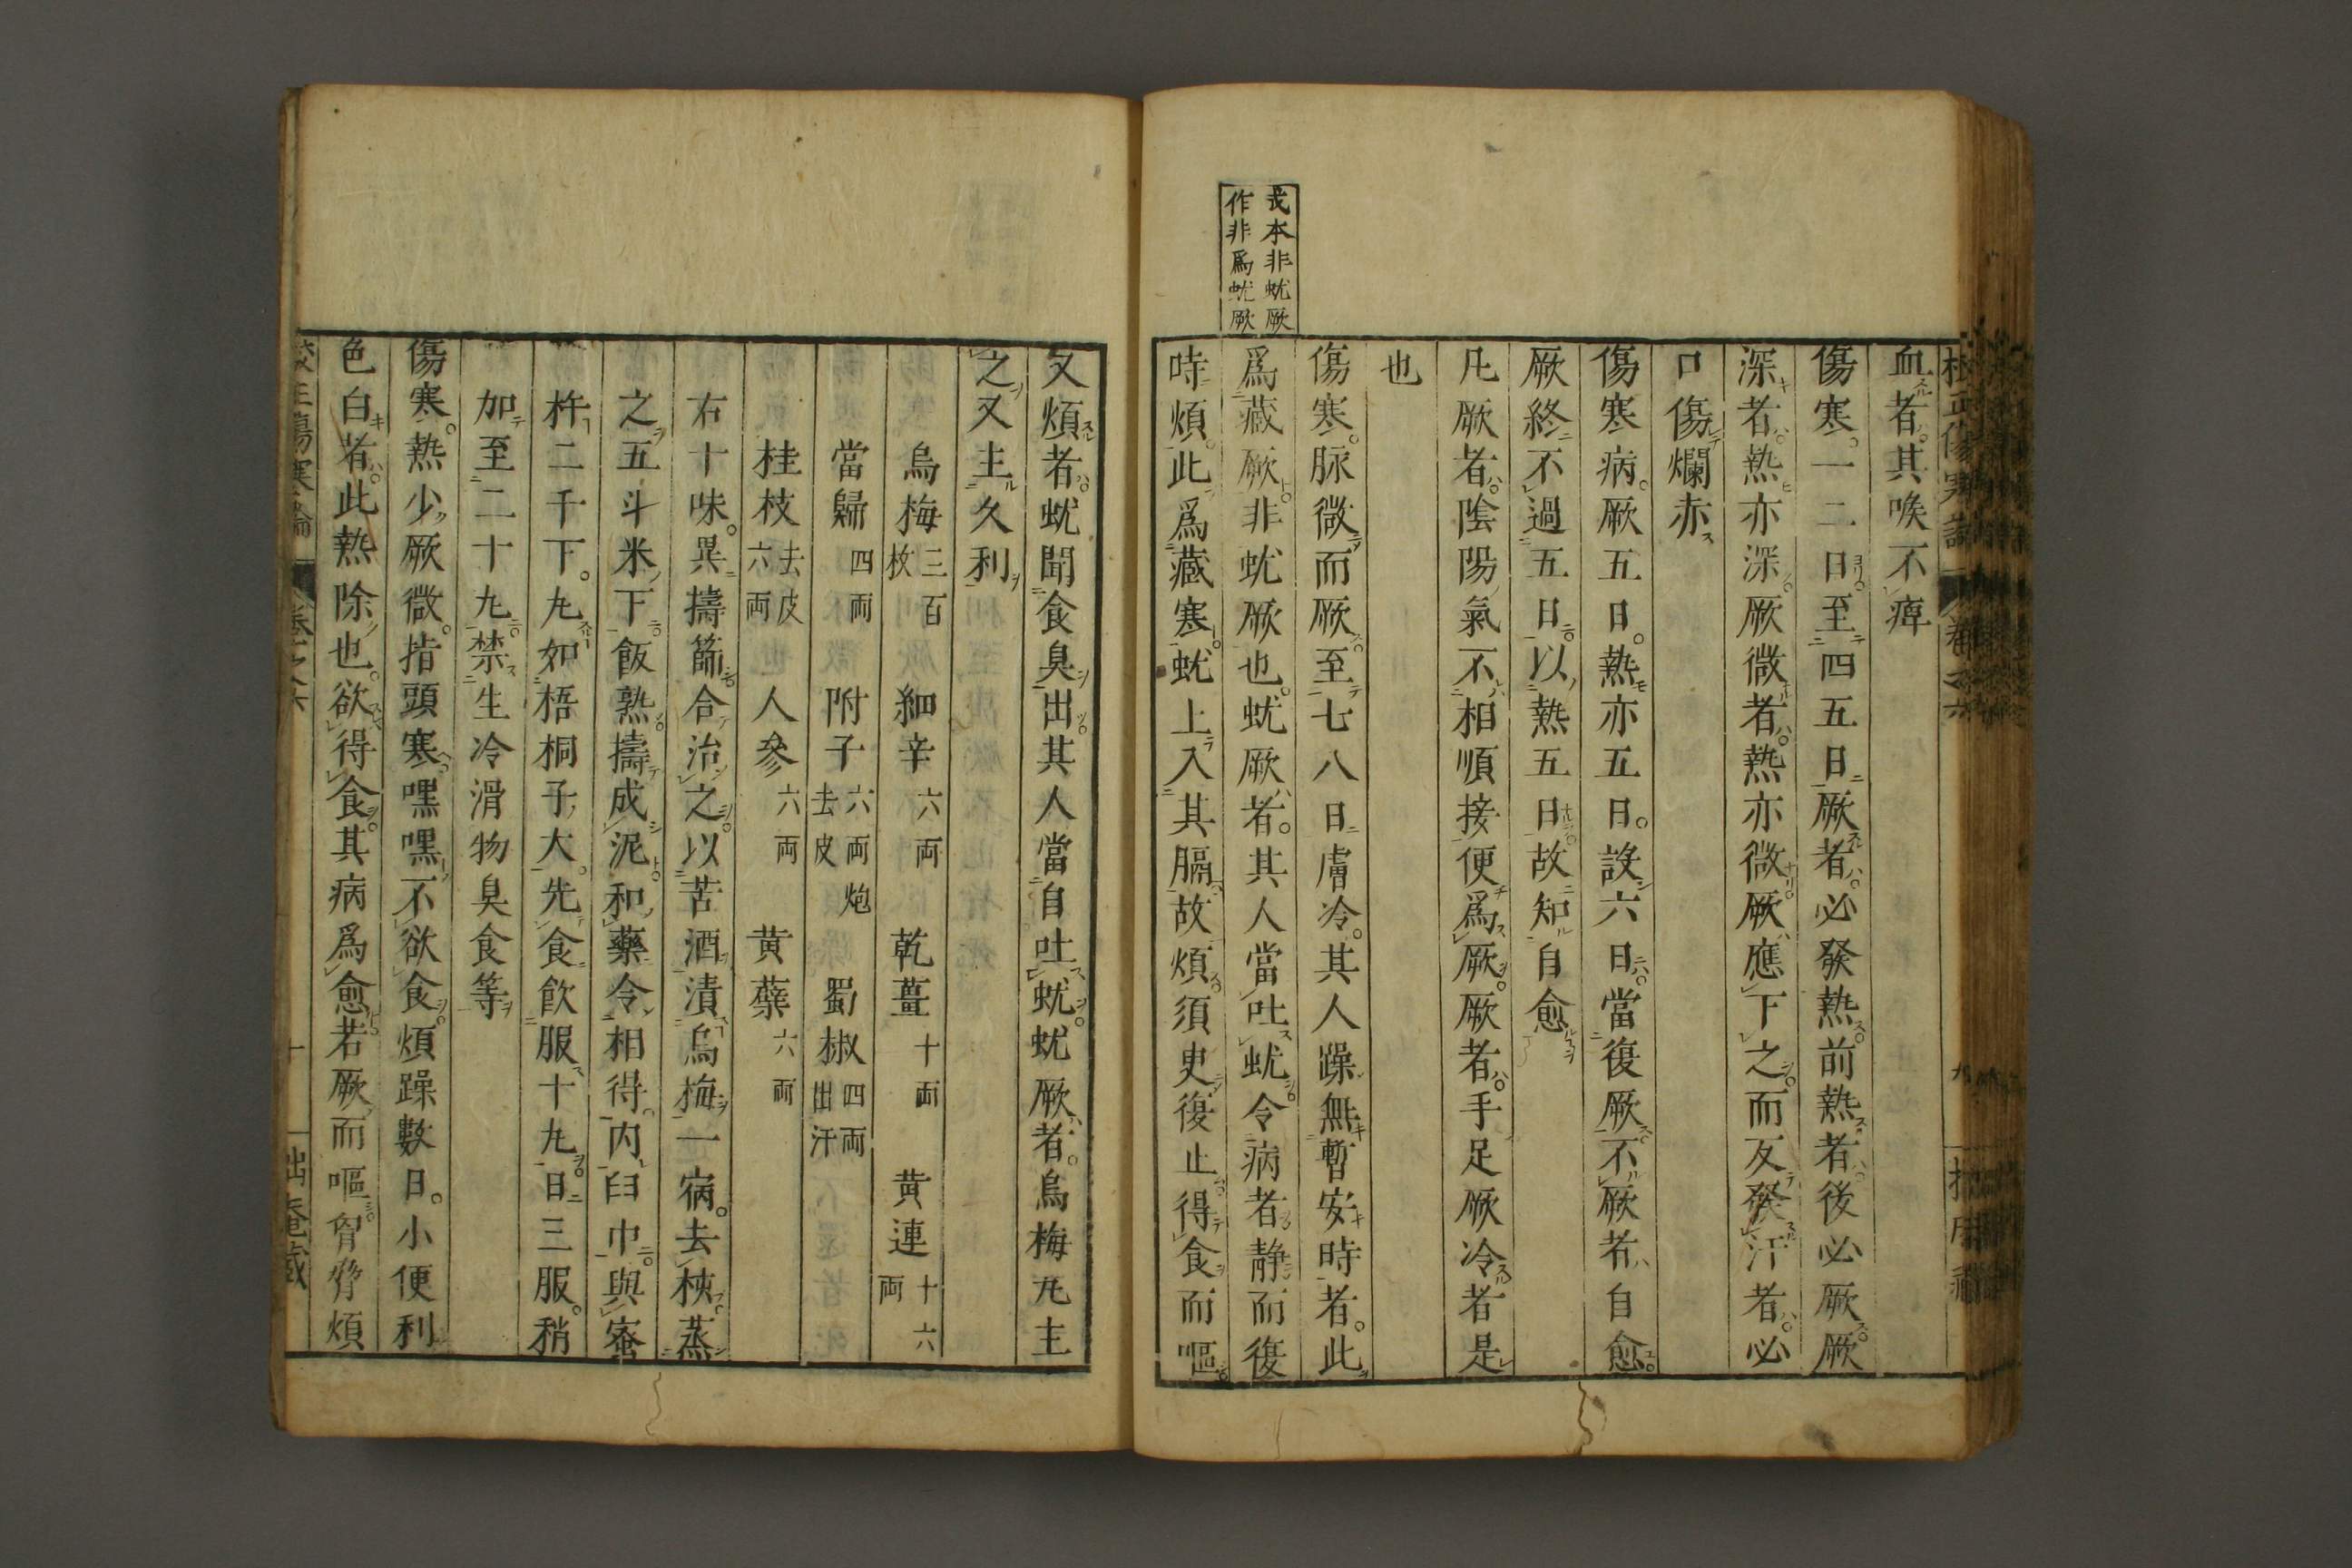 血者其喉不痺
傷寒一二日至四五日厥者必發熱前熱者後必厥厥
深者熱亦深厥微者熱亦微厥應下之而反發汗者必
口傷爛赤
傷寒病厥五日熱亦五日設六日當復厥不厥者自愈
厥終不過五日以熱五日故知自愈
凡厥者陰陽氣不相順接便爲厥厥者手足厥冷者是
也
或本非蚘厥
作非爲蚘厥
傷寒脉微而厥至七八日膚冷其人躁無暫安時者此
爲藏厥非蚘厥也蚘厥者其人當吐蚘令病者静而復
時煩此爲藏寒蚘上入其膈故煩須臾復止得食而嘔
又煩者蚘聞食臭出其人當自吐蚘蚘厥者烏梅丸主
之又主久利
烏梅三百枚 細辛六両 乾薑十両 黄連十六両
當歸四両 附子六両炮去皮 蜀椒四両出汗
桂枝去皮六両 人參六両 黄蘗六両
右十味異擣篩合治之以苦酒漬烏梅一病去核蒸
之五斗米下飯熟擣成泥和藥令相得内臼巾與蜜
杵二千下丸如梧桐子大先食飲服十丸日三服稍
加至二十丸禁生冷滑物臭食等
傷寒熱少厥微指頭寒嘿嘿不欲食煩躁數日小便利
色白者此熱除也欲得食其病爲愈若厥而嘔胷脅煩
傷寒論 卷之六 十